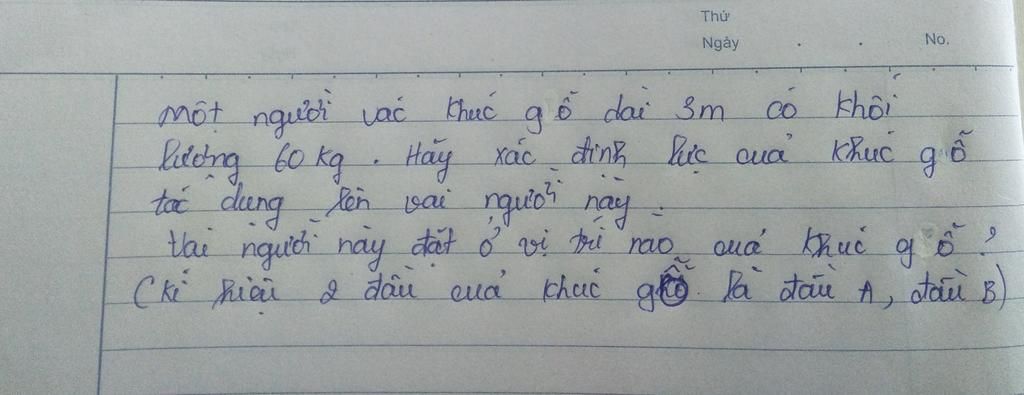 Thứ
Ngày . . No.
một người vác khúc gỗ dài 3m có khối
lượng 60 kg. Hãy xác định lực của khúc gỗ
tác dụng lên vai người này.
Vai người này đặt ở vị trí nào của khúc gỗ?
(Kí hiệu 2 đầu của khúc gỗ là đầu A, đầu B)